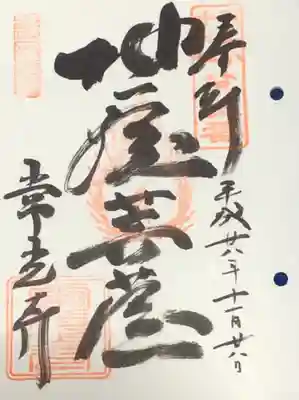 奉拝
平成廿八年十一月廿八日
地蔵菩薩
常光寺